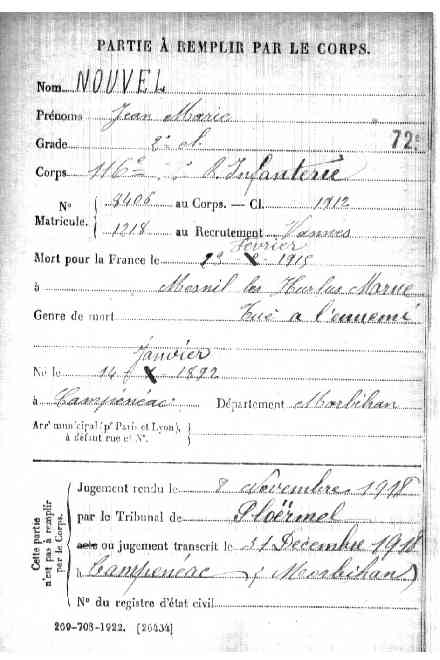 PARTIE À REMPLIR PAR LE CORPS.
Nom NOUVEL
Prénoms Jean Marie
Grade 2e cl. 72
Corps 116e R. Infanterie
N° 8406 au Corps. — Cl. 1912
Matricule. 1218 au Recrutement Vannes
Février
Mort pour la France le 1915
à Mesnil les Hurlus Marne
Genre de mort Tué a l'ennemi
Janvier
Né le 14 1892
à Campénéac Département Morbihan
Arr' municipal (p' Paris et Lyon),
à défaut rue et N°.
Cette partie
n'est pas à remplir
par le Corps.
Jugement rendu le 8 Novembre 1918
par le Tribunal de Ploërmel
acte ou jugement transcrit le 31 Décembre 1918
à Campénéac (Morbihan)
N° du registre d'état civil
269-708-1922. [26434]